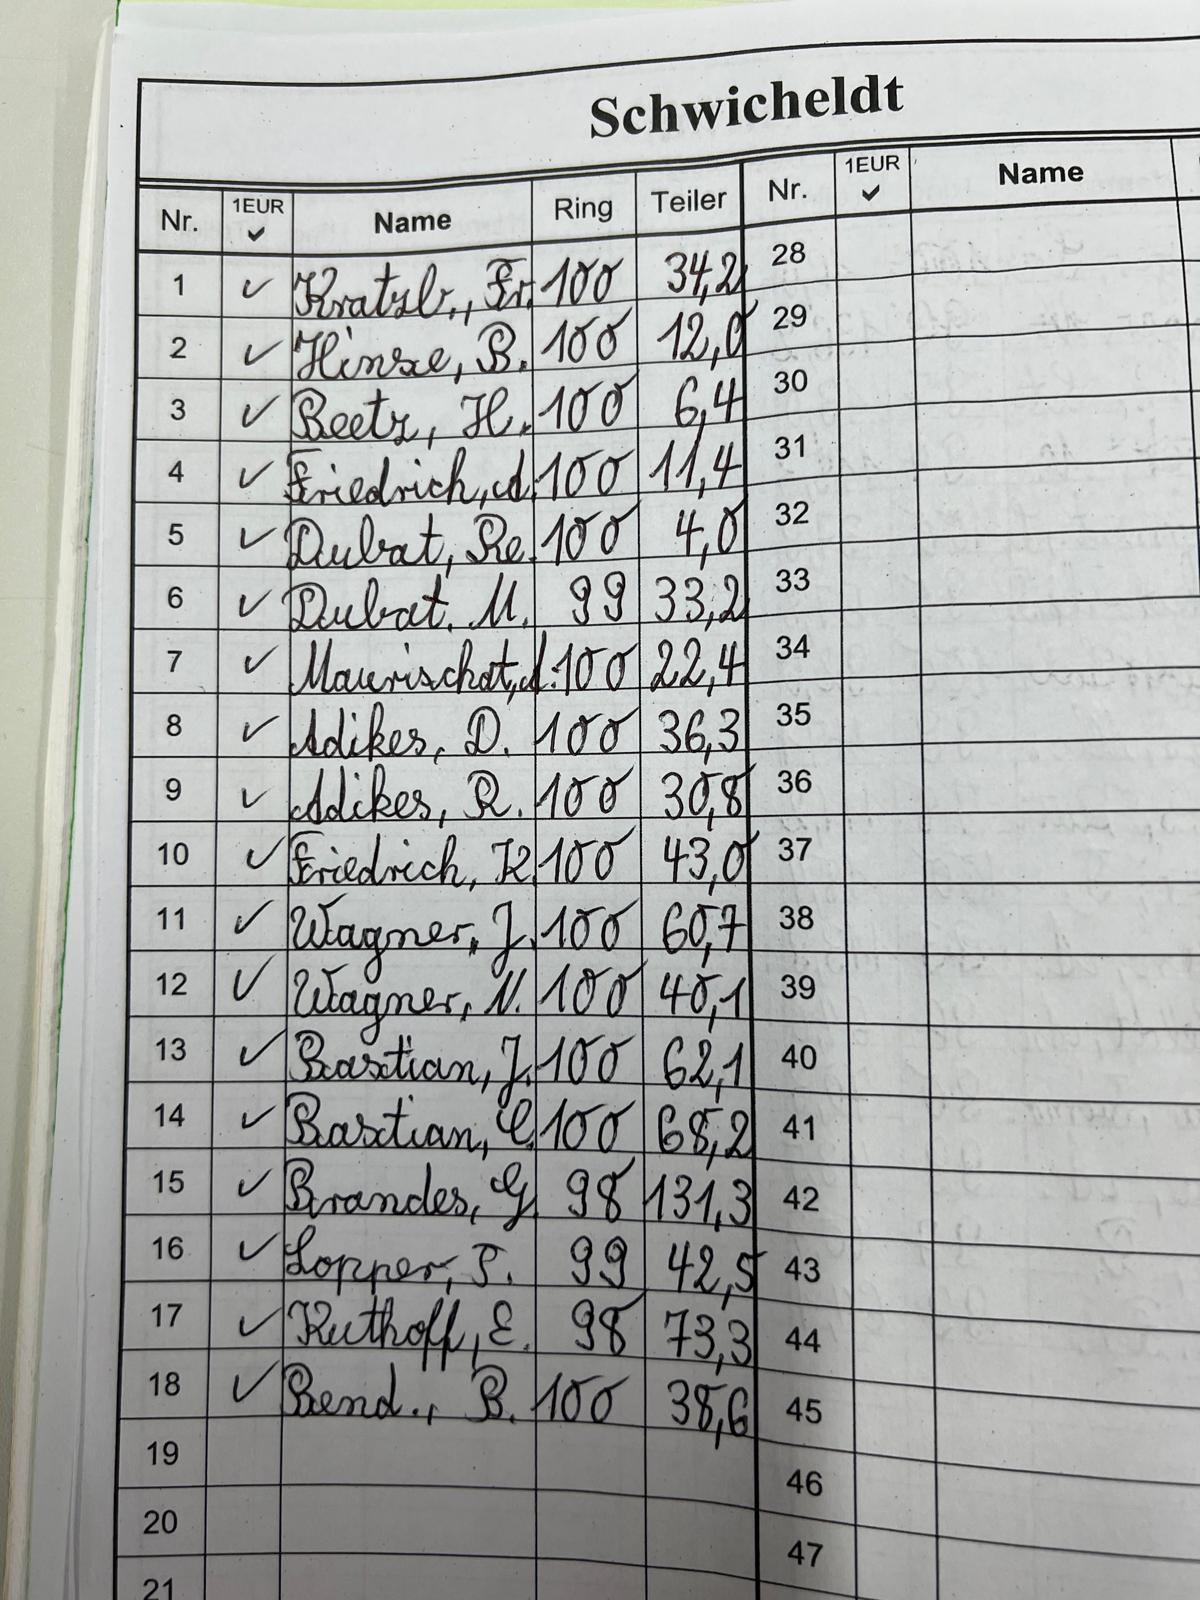 Schwicheldt
Nr. 1EUR ✓ Name Ring Teiler Nr. 1EUR ✓ Name
1 ✓ Kratzb., Fr. 100 34,2 28
2 ✓ Hinze, B. 100 12,0 29
3 ✓ Beetz, H. 100 6,4 30
4 ✓ Friedrich, A. 100 11,4 31
5 ✓ Dubat, Re. 100 4,0 32
6 ✓ Dubat. M. 99 33,2 33
7 ✓ Maurischat, A. 100 22,4 34
8 ✓ Adikes, D. 100 36,3 35
9 ✓ Adikes, R. 100 30,8 36
10 ✓ Friedrich, K. 100 43,0 37
11 ✓ Wagner, J. 100 60,7 38
12 ✓ Wagner, N. 100 40,1 39
13 ✓ Bastian, J. 100 62,1 40
14 ✓ Bastian, C. 100 68,2 41
15 ✓ Brandes, G. 98 131,3 42
16 ✓ Lopper, P. 99 42,5 43
17 ✓ Kuthoff, E. 98 73,3 44
18 ✓ Bend., B. 100 38,6 45
19 46
20 47
21